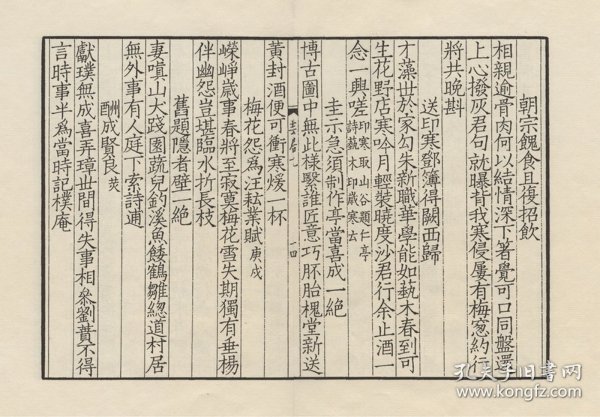 朝宗餽食且復招飲
相親逾骨肉何以結情深下箸覺可口同盤還
上心撥灰君句就曝背我寒侵屢有梅窓約行
將共晚斟
送印寒鄧簿得闕西歸
才藻世於家勾朱新職華學能如藝木春到可
生花野店寒吟月輕裝曉度沙君行余止酒一
念一興嗟
印寒取山谷題仁亭
詩藝木印歲寒去
圭示急須制作亭當喜成一絕
十四
博古圖中無此樣繄誰匠意巧胚胎槐堂新送
黄封酒便可衝寒煖一杯
梅花怨爲汪耘業賦 庚戌
嶸崢歲事春將至寂寞梅花雪失期獨有垂楊
伴幽怨豈堪臨水折長枝
舊題隱者壁一絕
妻嗔山犬踐園蔬兒釣溪魚餧鶴雛緫道村居
無外事有人庭下索詩逋
酬成賢良
獻璞無成喜弄璋世間得失事相叅劉蕡不得
言時事半爲當時記樸庵
孔夫子旧书网
kongfz.com